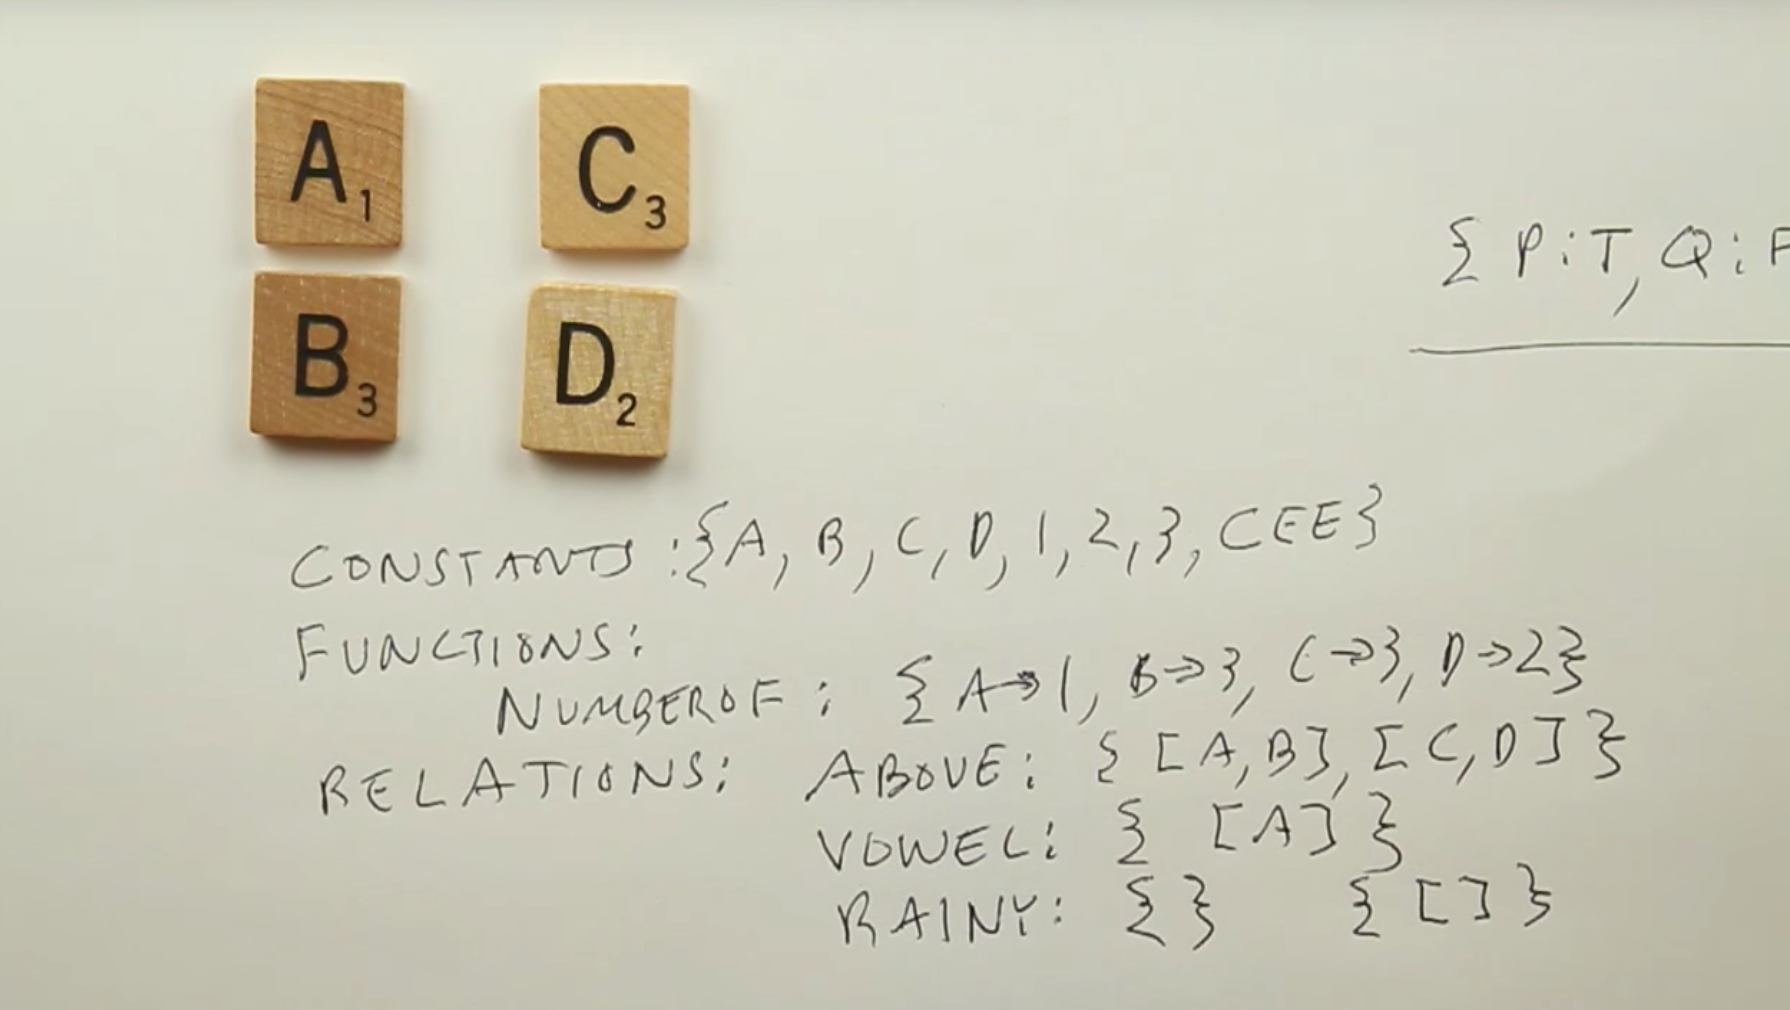 A1 C3
B3 D2
{ P:T, Q:F
CONSTANTS :{A, B, C, D, 1, 2, 3, CEE}
FUNCTIONS:
NUMBEROF : { A→1, B→3, C→3, D→2}
RELATIONS: ABOVE: { [A,B], [C,D] }
VOWEL: { [A] }
RAINY: { } { [ ] }